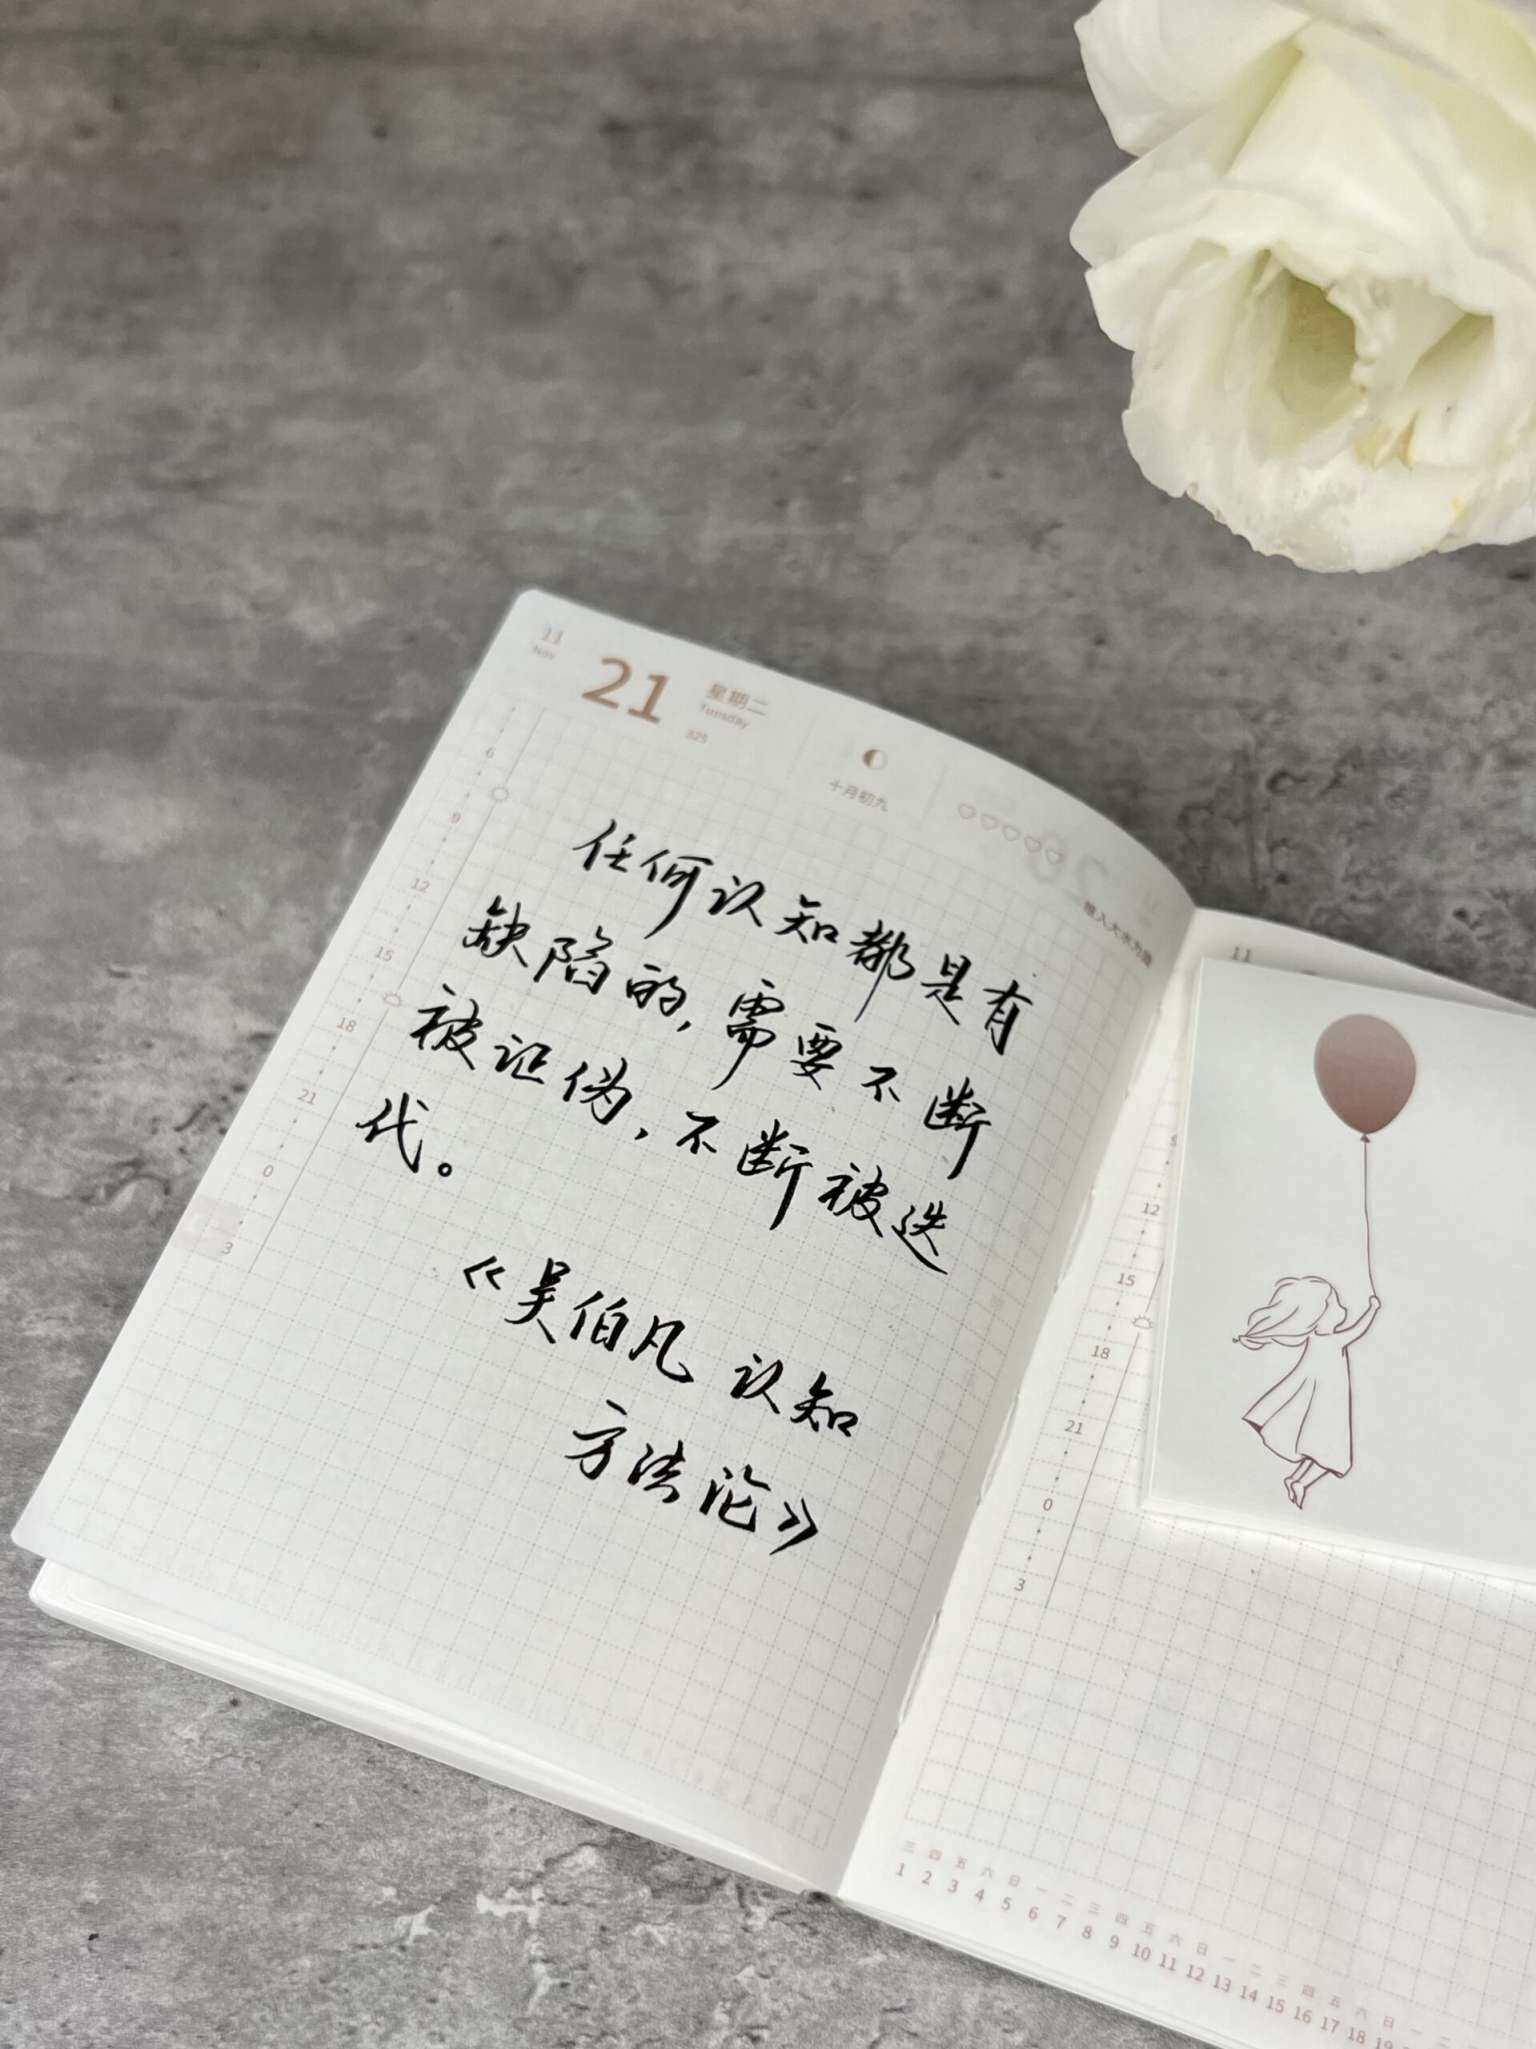 11
Nov
21
星期二
Tuesday
325
十月初九
6
9
12
15
18
21
0
3
任何认知都是有
缺陷的,需要不断
被证伪,不断被迭
代。
《吴伯凡 认知
方法论》
11
12
15
18
21
0
3
三 四 五 六 日 一 二 三 四 五 六 日 一 二 三 四 五 六 日 一 二
1 2 3 4 5 6 7 8 9 10 11 12 13 14 15 16 17 18 19